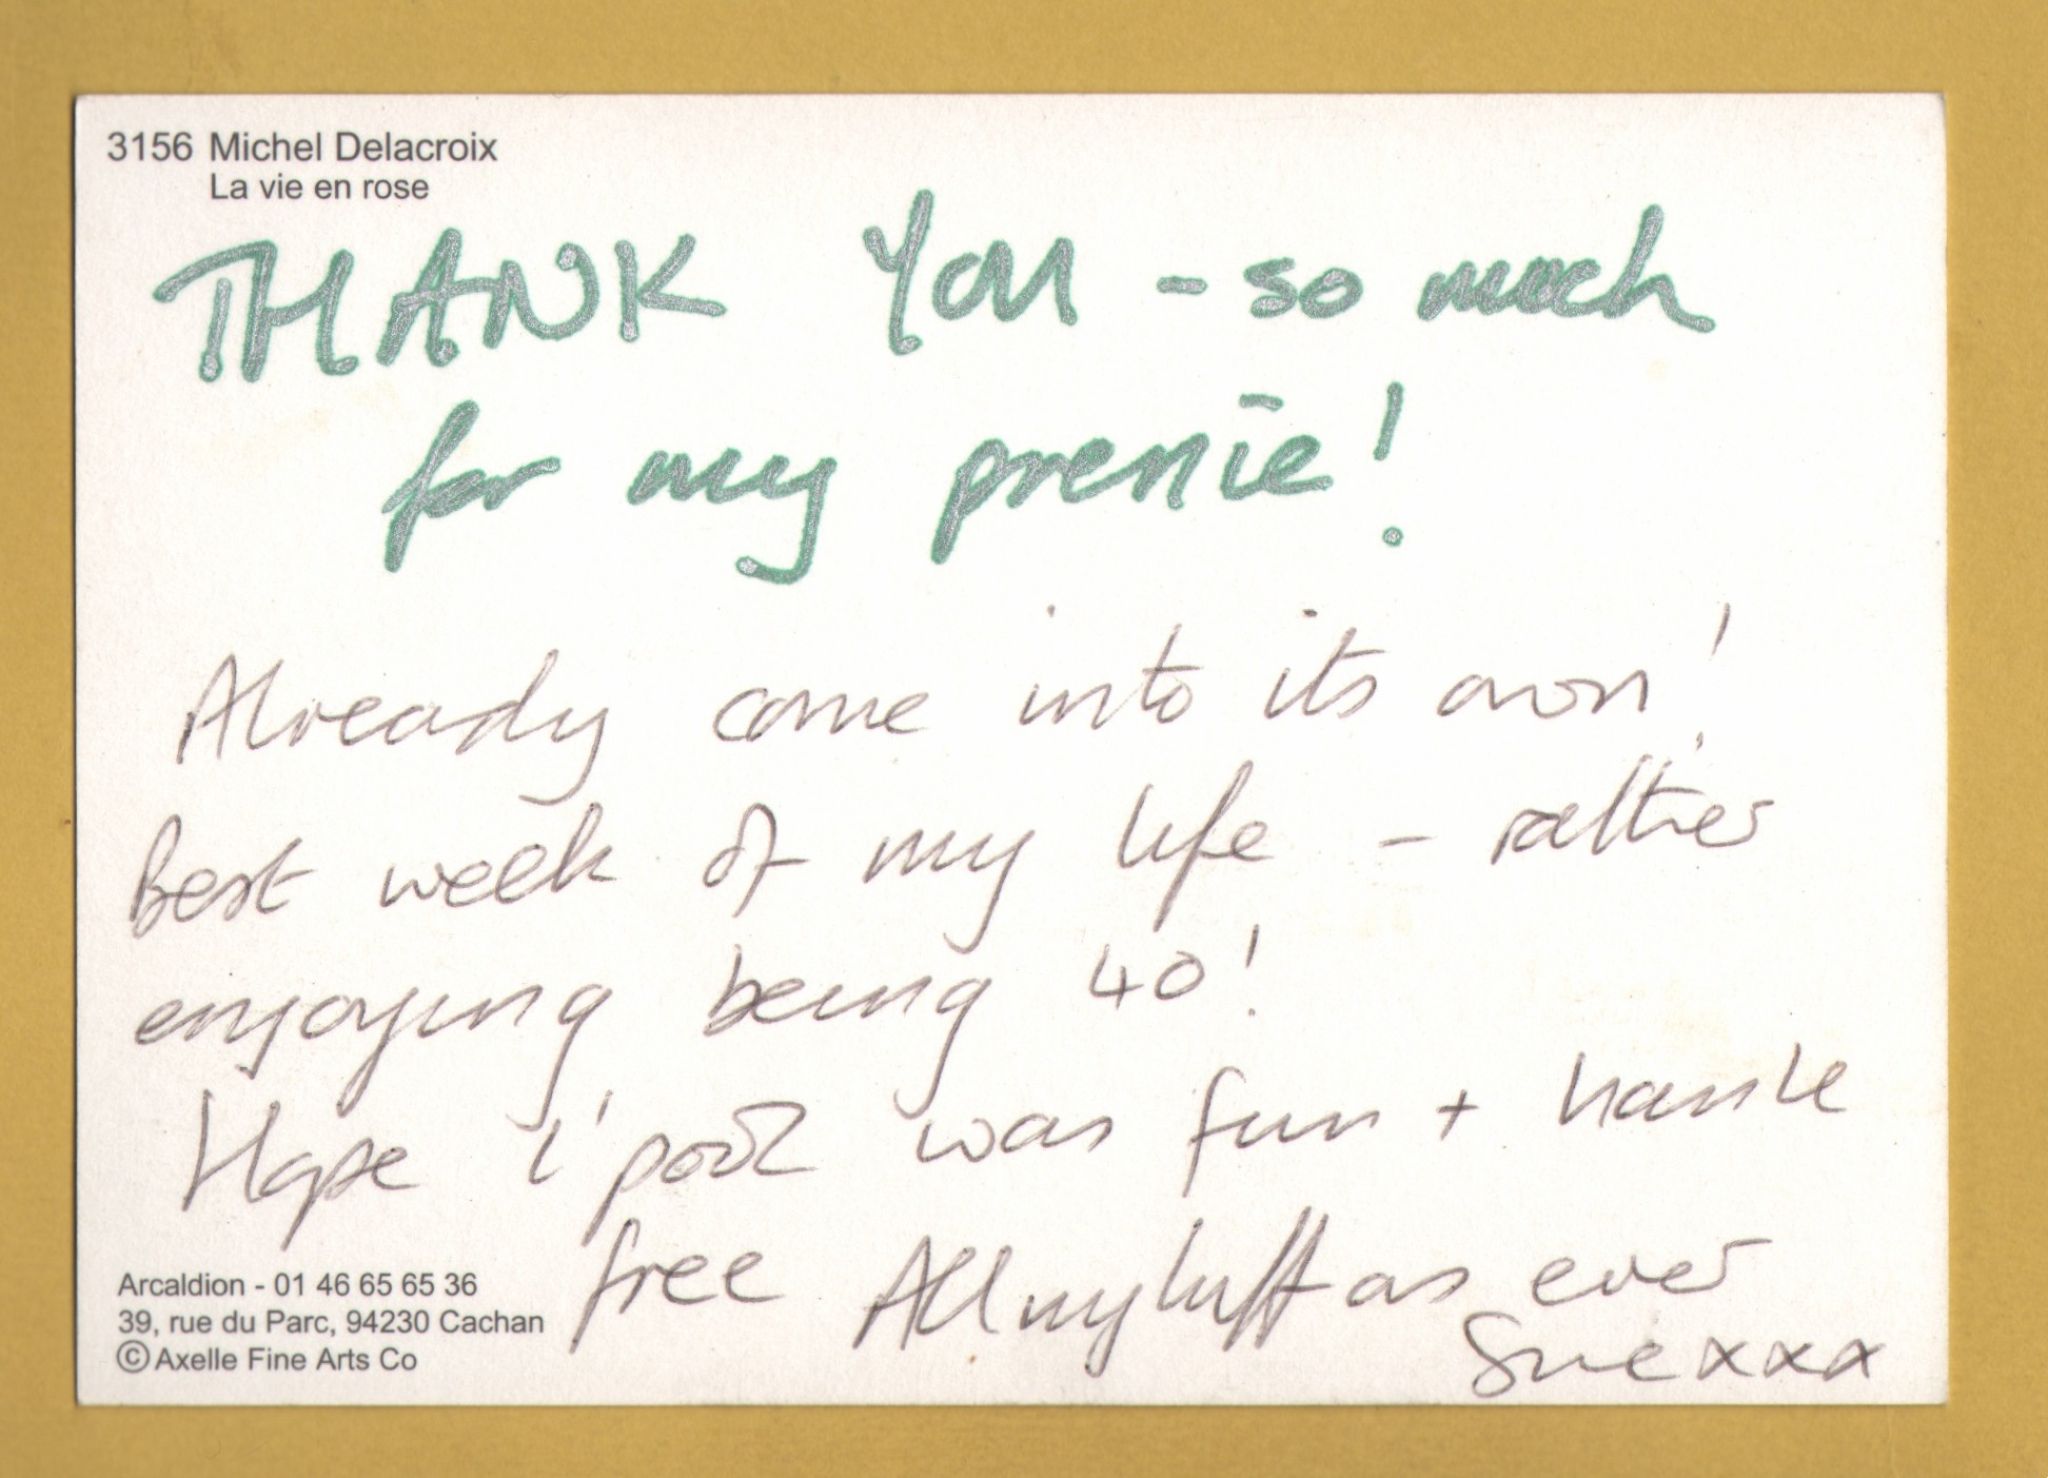 3156 Michel Delacroix
La vie en rose
THANK YOU - so much
for my prezzie!
Already come into its own!
Best week of my life - rather
enjoying being 40!
Hope l'pool was fun + hassle
free All my luff as ever
Sue xxx
Arcaldion - 01 46 65 65 36
39, rue du Parc, 94230 Cachan
© Axelle Fine Arts Co